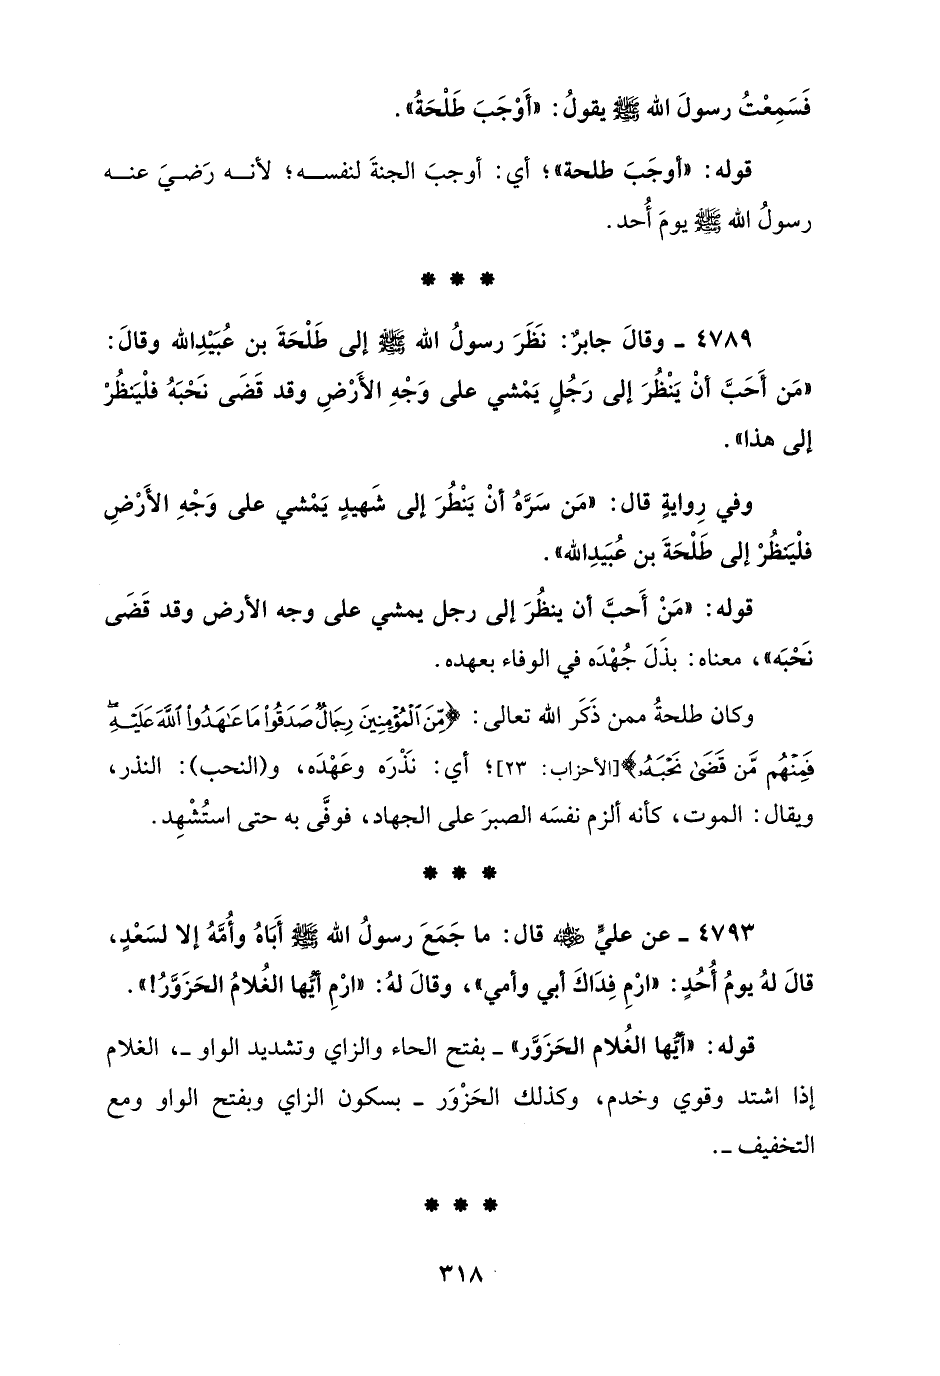 فَسَمِعْتُ رسولَ الله ﷺ يقولُ: «أَوْجَبَ طَلْحَةُ».
قوله: «أوجَبَ طلحة»؛ أي: أوجبَ الجنةَ لنفسه؛ لأنه رَضيَ عنه
رسولُ الله ﷺ يومَ أُحد.
* * *
٤٧٨٩ ـ وقالَ جابرٌ: نَظَرَ رسولُ الله ﷺ إلى طَلْحَةَ بن عُبَيْدِالله وقالَ:
«مَن أَحَبَّ أنْ يَنْظُرَ إلى رَجُلٍ يَمْشي على وَجْهِ الأَرْضِ وقد قَضَى نَحْبَهُ فلْيَنظُرْ
إلى هذا».
وفي رِوايةٍ قال: «مَن سَرَّهُ أنْ يَنْظُرَ إلى شَهيدٍ يَمْشي على وَجْهِ الأَرْضِ
فلْيَنظُرْ إلى طَلْحَةَ بن عُبَيدِالله».
قوله: «مَنْ أَحبَّ أن ينظُرَ إلى رجل يمشي على وجه الأرض وقد قَضَى
نَحْبَه»، معناه: بذَلَ جُهْدَه في الوفاء بعهده.
وكان طلحةُ ممن ذَكَر الله تعالى: ﴿مِّنَ ٱلْمُؤْمِنِينَ رِجَالٌ صَدَقُوا۟ مَا عَـٰهَدُوا۟ ٱللَّهَ عَلَيْهِ ۖ
فَمِنْهُم مَّن قَضَىٰ نَحْبَهُۥ﴾[الأحزاب: ٢٣]؛ أي: نَذْرَه وعَهْدَه، و(النحب): النذر،
ويقال: الموت، كأنه ألزم نفسَه الصبرَ على الجهاد، فوفَّى به حتى استُشْهِد.
* * *
٤٧٩٣ ـ عن عليٍّ ﷺ قال: ما جَمَعَ رسولُ الله ﷺ أَبَاهُ وأُمَّهُ إلا لسَعْدٍ،
قالَ لهُ يومُ أُحُدٍ: «ارْمِ فِدَاكَ أبي وأمي»، وقالَ لهُ: «ارْمِ أيُّها الغُلامُ الحَزَوَّرُ!».
قوله: «أيُّها الغُلام الحَزَوَّر» ـ بفتح الحاء والزاي وتشديد الواو ـ، الغلام
إذا اشتد وقوي وخدم، وكذلك الحَزْوَر ـ بسكون الزاي وبفتح الواو ومع
التخفيف ـ.
* * *
٣١٨